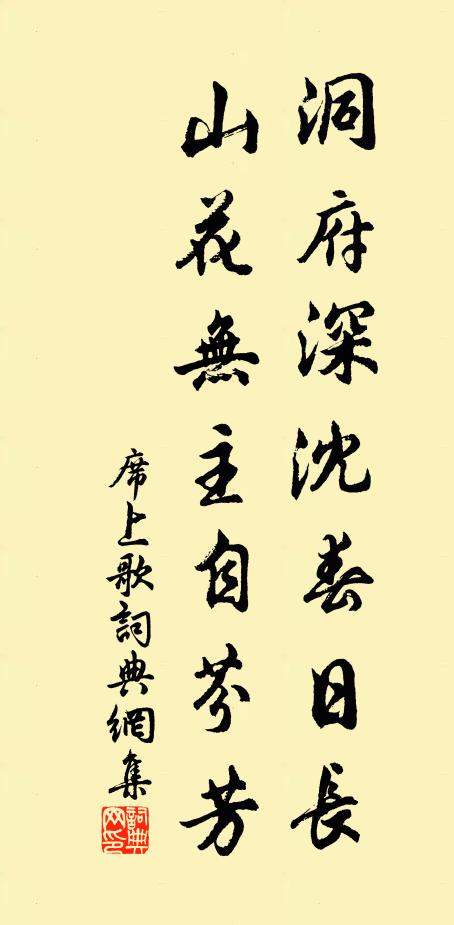 洞府深沈春日長
山花無主自芬芳
席上歌詞典網集
詞典網印